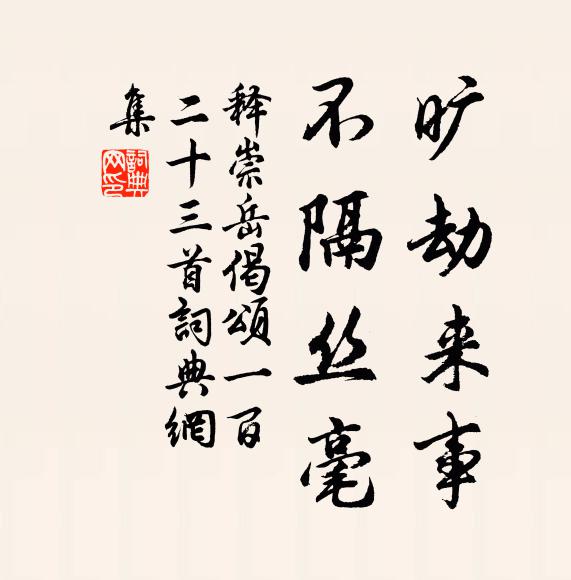 旷劫来事
不隔丝毫
释崇岳偈颂一百
二十三首詞典網
集
詞典网印